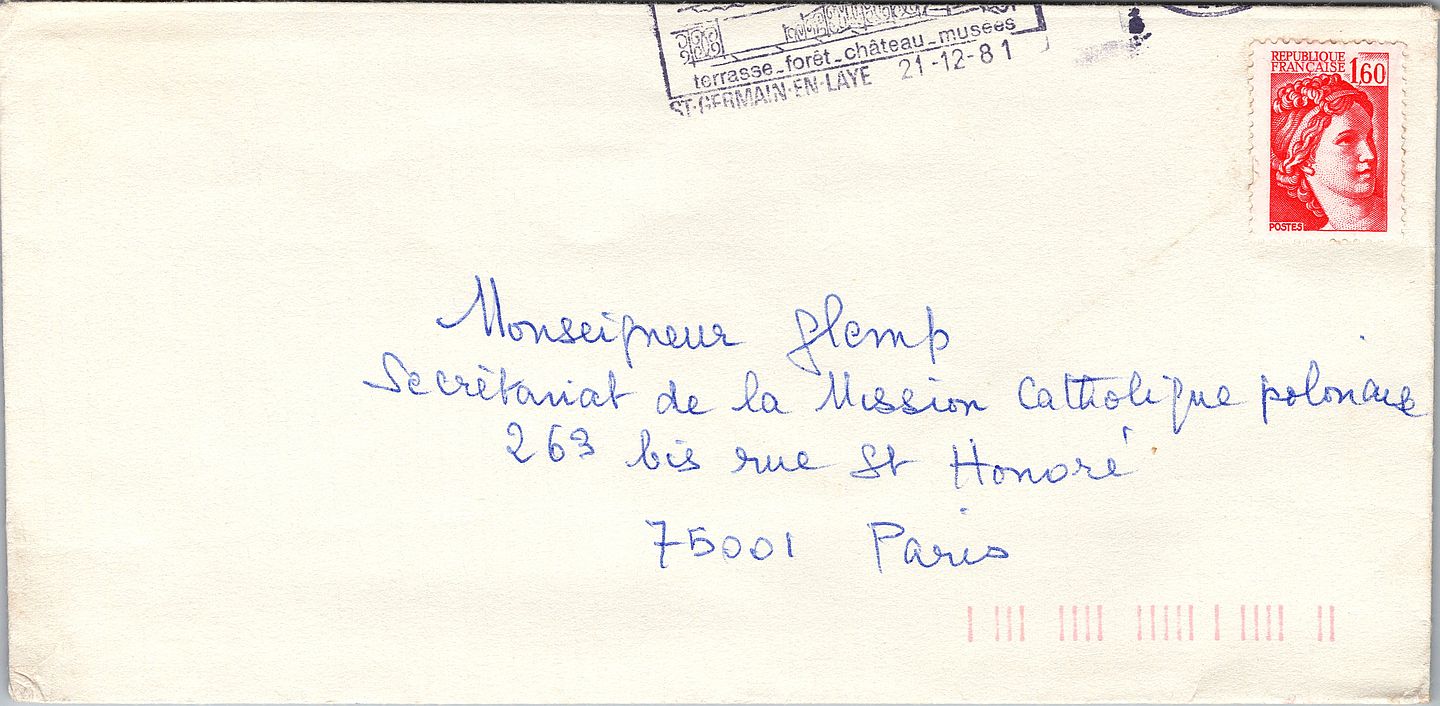 terrasse_forêt_château_musées
ST-GERMAIN-EN-LAYE 21-12-81
REPUBLIQUE
FRANÇAISE 1,60
POSTES
Monseigneur Glemp
Secrétariat de la Mission Catholique polonaise
263 bis rue St Honoré
75001 Paris